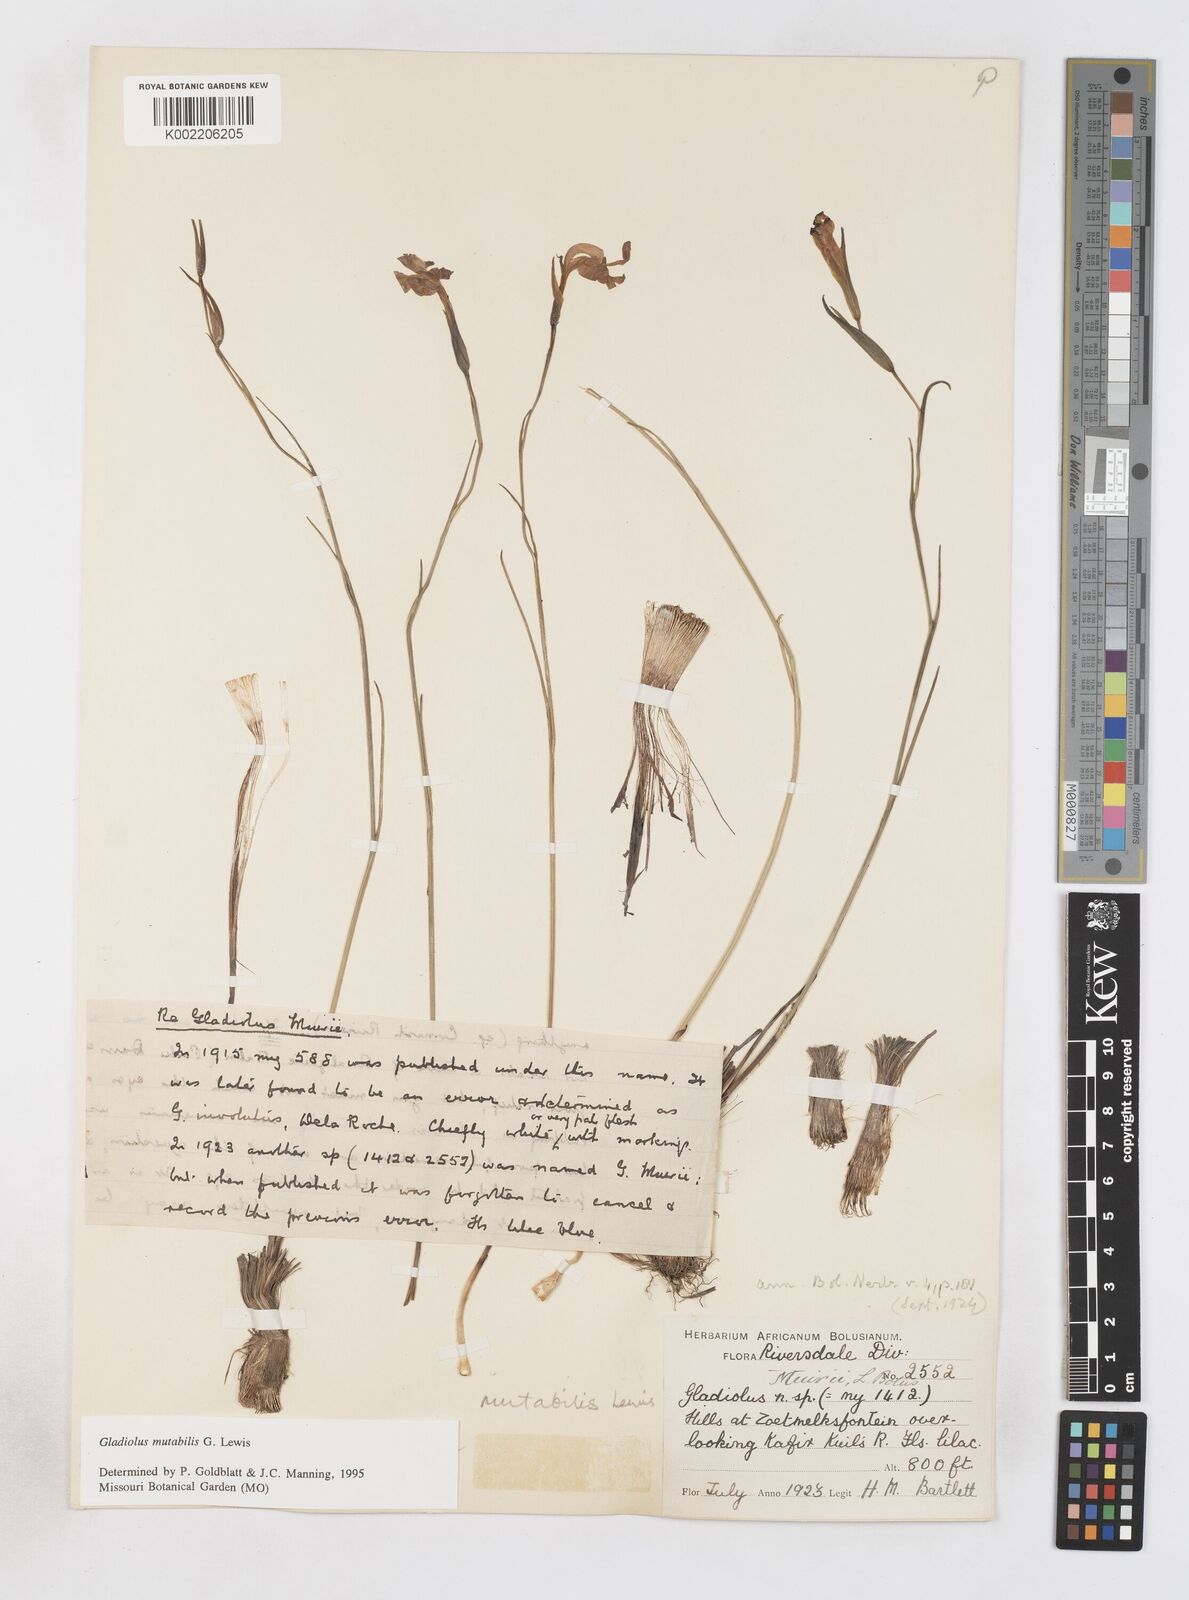 ROYAL BOTANIC GARDENS KEW
K002206205
Re Gladiolus Muirii.
In 1915 my 588 was published under this name. It
was later found to be an error & determined as
or very pale flesh
G. involutus, Dela Roche. Chiefly white with markings.
In 1923 another sp (1412 & 2552) was named G. Muirii;
but when published it was forgotten to cancel &
record the previous error. Fls lilac blue.
Ann. Bol. Herb. v. 4, p. 
(Sept. 1924)
HERBARIUM AFRICANUM BOLUSIANUM.
FLORA Riversdale Div:
Muirii, L. Bolus No. 2552
Gladiolus n. sp. (= my 1412.)
Hills at Zoetmelksfontein over-
looking Kafir Kuils R. Fls. lilac.
Alt. 800 ft.
Flor July Anno 1923 Legit H. M. Bartlett
mutabilis Lewis
Gladiolus mutabilis G. Lewis
Determined by P. Goldblatt & J.C. Manning, 1995
Missouri Botanical Garden (MO)
inches
Density
Don Williams
centimetres
M000827
Kew
Royal Botanic Gardens
copyright reserved
0 1 2 3 4 5 6 7 8 9 10 cm